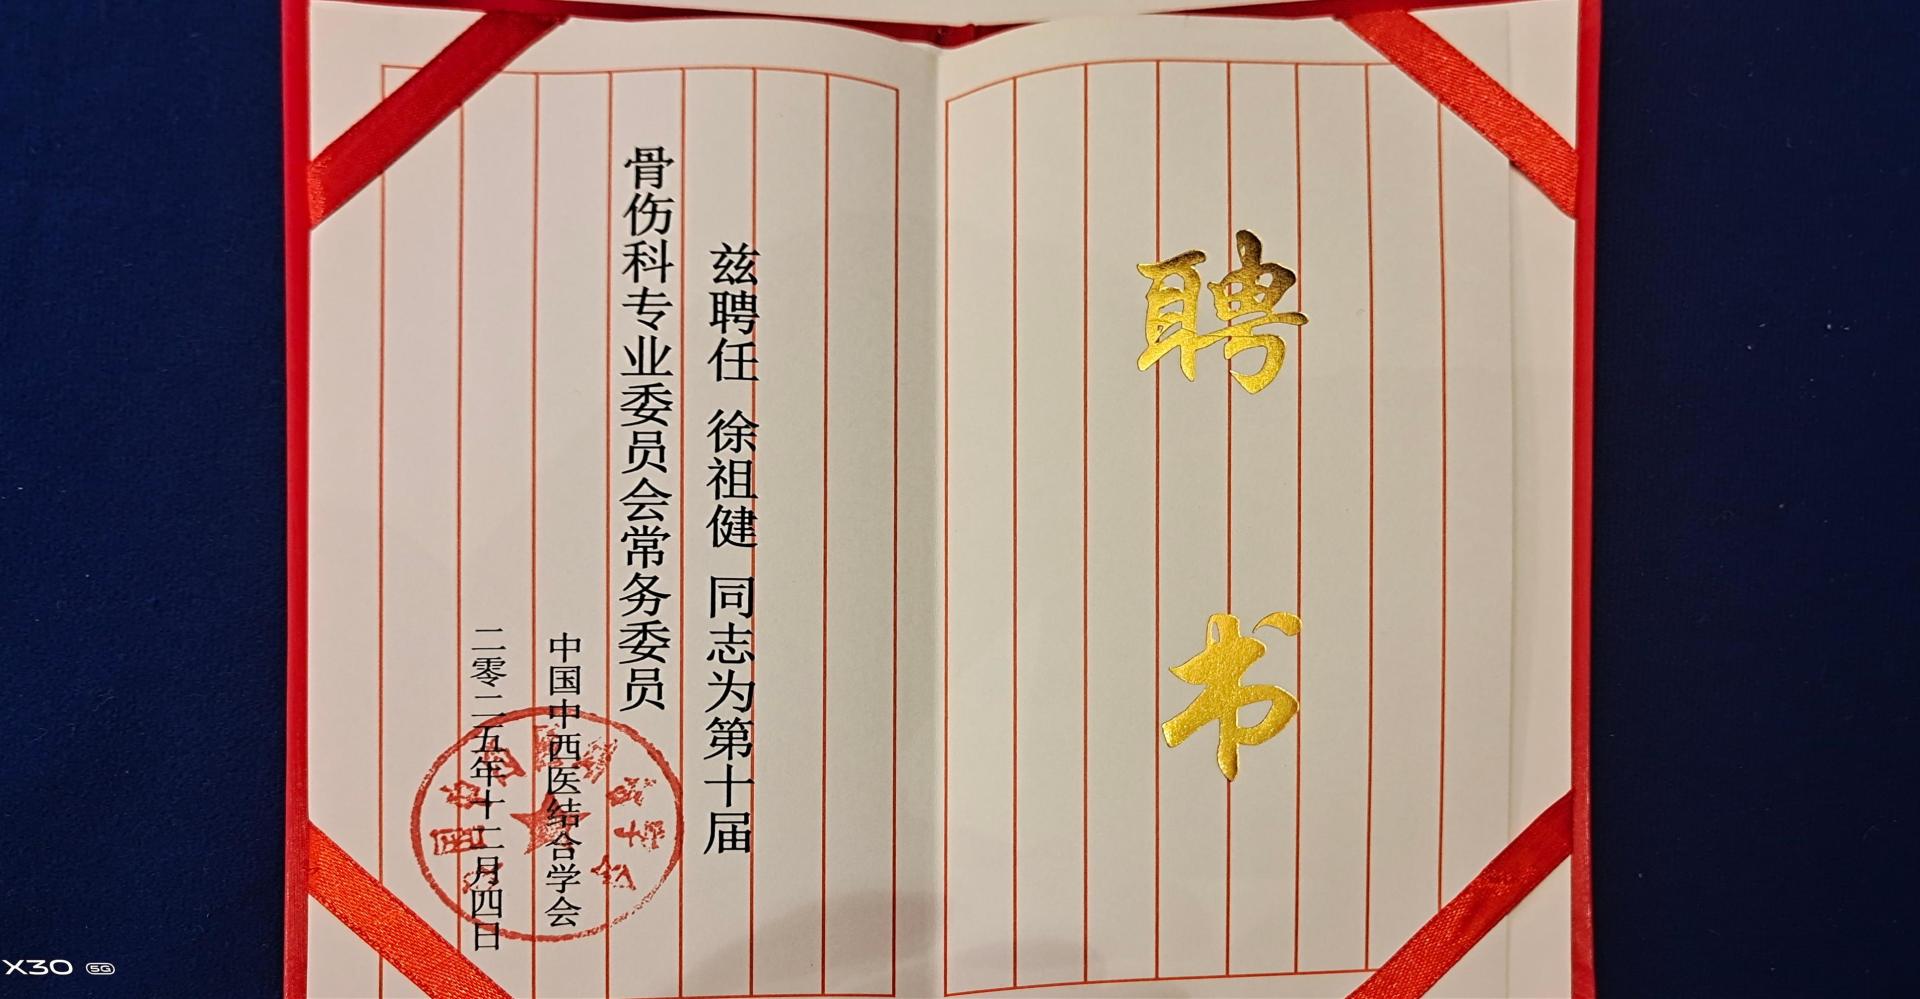 聘书
兹聘任 徐祖健 同志为第十届
骨伤科专业委员会常务委员
中国中西医结合学会
二零二五年十二月四日
X30 5G